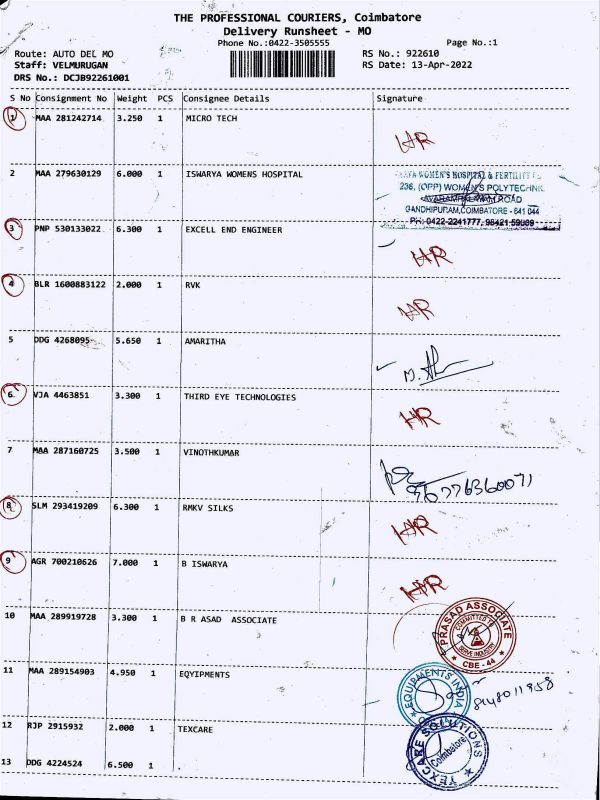 THE PROFESSIONAL COURIERS, Coimbatore
Delivery Runsheet - MO
Phone No.:0422-3505555
Page No.:1
Route: AUTO DEL MO
RS No.: 922610
Staff: VELMURUGAN
RS Date: 13-Apr-2022
DRS No.: DCJB92261001
S No Consignment No Weight PCS Consignee Details Signature
1 MAA 281242714 3.250 1 MICRO TECH
HR
2 MAA 279630129 6.000 1 ISWARYA WOMENS HOSPITAL
WOMEN'S HOSPITAL & FERTILITY
236, (OPP) WOMEN'S POLYTECHNIC
ROAD
GANDHIPURAM, COIMBATORE - 641 044
PH: 0422-2241777, 98421 59009
3 PNP 530133022 6.300 1 EXCELL END ENGINEER
HR
4 BLR 1600883122 2.000 1 RVK
HR
5 DDG 4268095 5.650 1 AMARITHA
6 VJA 4463851 3.300 1 THIRD EYE TECHNOLOGIES
HR
7 MAA 287160725 3.500 1 VINOTHKUMAR
8 SLM 293419209 6.300 1 RMKV SILKS
HR
9 AGR 700210626 7.000 1 B ISWARYA
HR
10 MAA 289919728 3.300 1 B R ASAD ASSOCIATE
PRASAD ASSOCIATE
COMMITTED TO
SERVE INDUSTRY
CBE - 44
11 MAA 289154903 4.950 1 EQYIPMENTS
EQUIPMENTS INDIA
12 RJP 2915932 2.000 1 TEXCARE
TEXCARE SOLUTIONS
Coimbatore
13 DDG 4224524 6.500 1